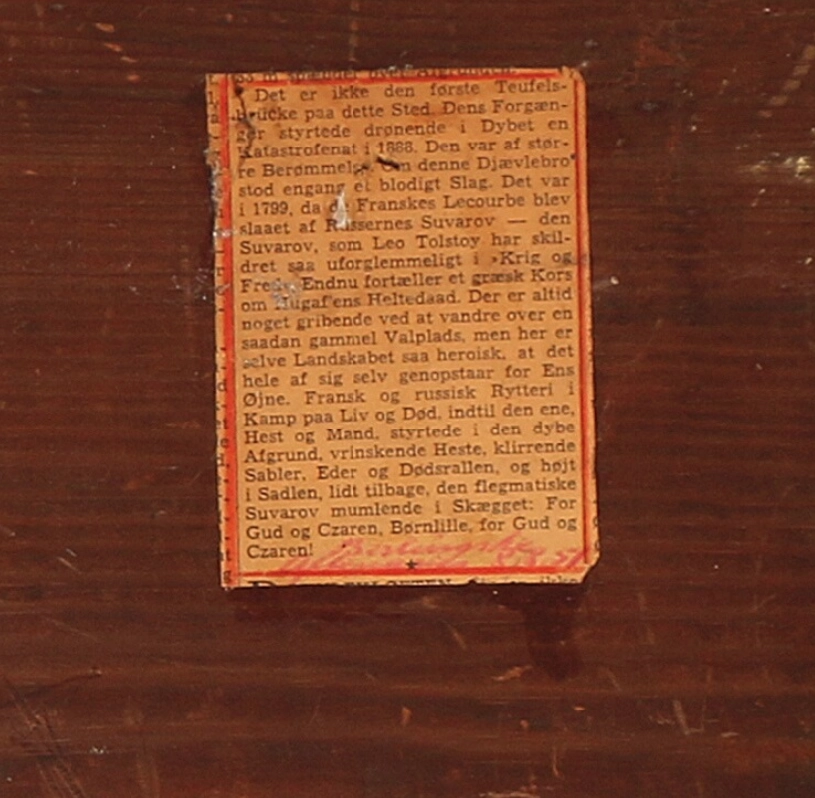 33 m spænder over Afgrunden.
Det er ikke den første Teufels-
brücke paa dette Sted. Dens Forgæn-
ger styrtede drønende i Dybet en
Katastrofenat i 1888. Den var af stør-
re Berømmelse. Om denne Djævlebro
stod engang et blodigt Slag. Det var
i 1799, da de Franskes Lecourbe blev
slaaet af Russernes Suvarov — den
Suvarov, som Leo Tolstoy har skil-
dret saa uforglemmeligt i »Krig og
Fred«. Endnu fortæller et græsk Kors
om Heltedaad. Der er altid
noget gribende ved at vandre over en
saadan gammel Valplads, men her er
selve Landskabet saa heroisk, at det
hele af sig selv genopstaar for Ens
Øjne. Fransk og russisk Rytteri i
Kamp paa Liv og Død, indtil den ene,
Hest og Mand, styrtede i den dybe
Afgrund, vrinskende Heste, klirrende
Sabler, Eder og Dødsrallen, og højt
i Sadlen, lidt tilbage, den flegmatiske
Suvarov mumlende i Skægget: For
Gud og Czaren, Børnlille, for Gud og
Czaren!
Berlingske
ikke